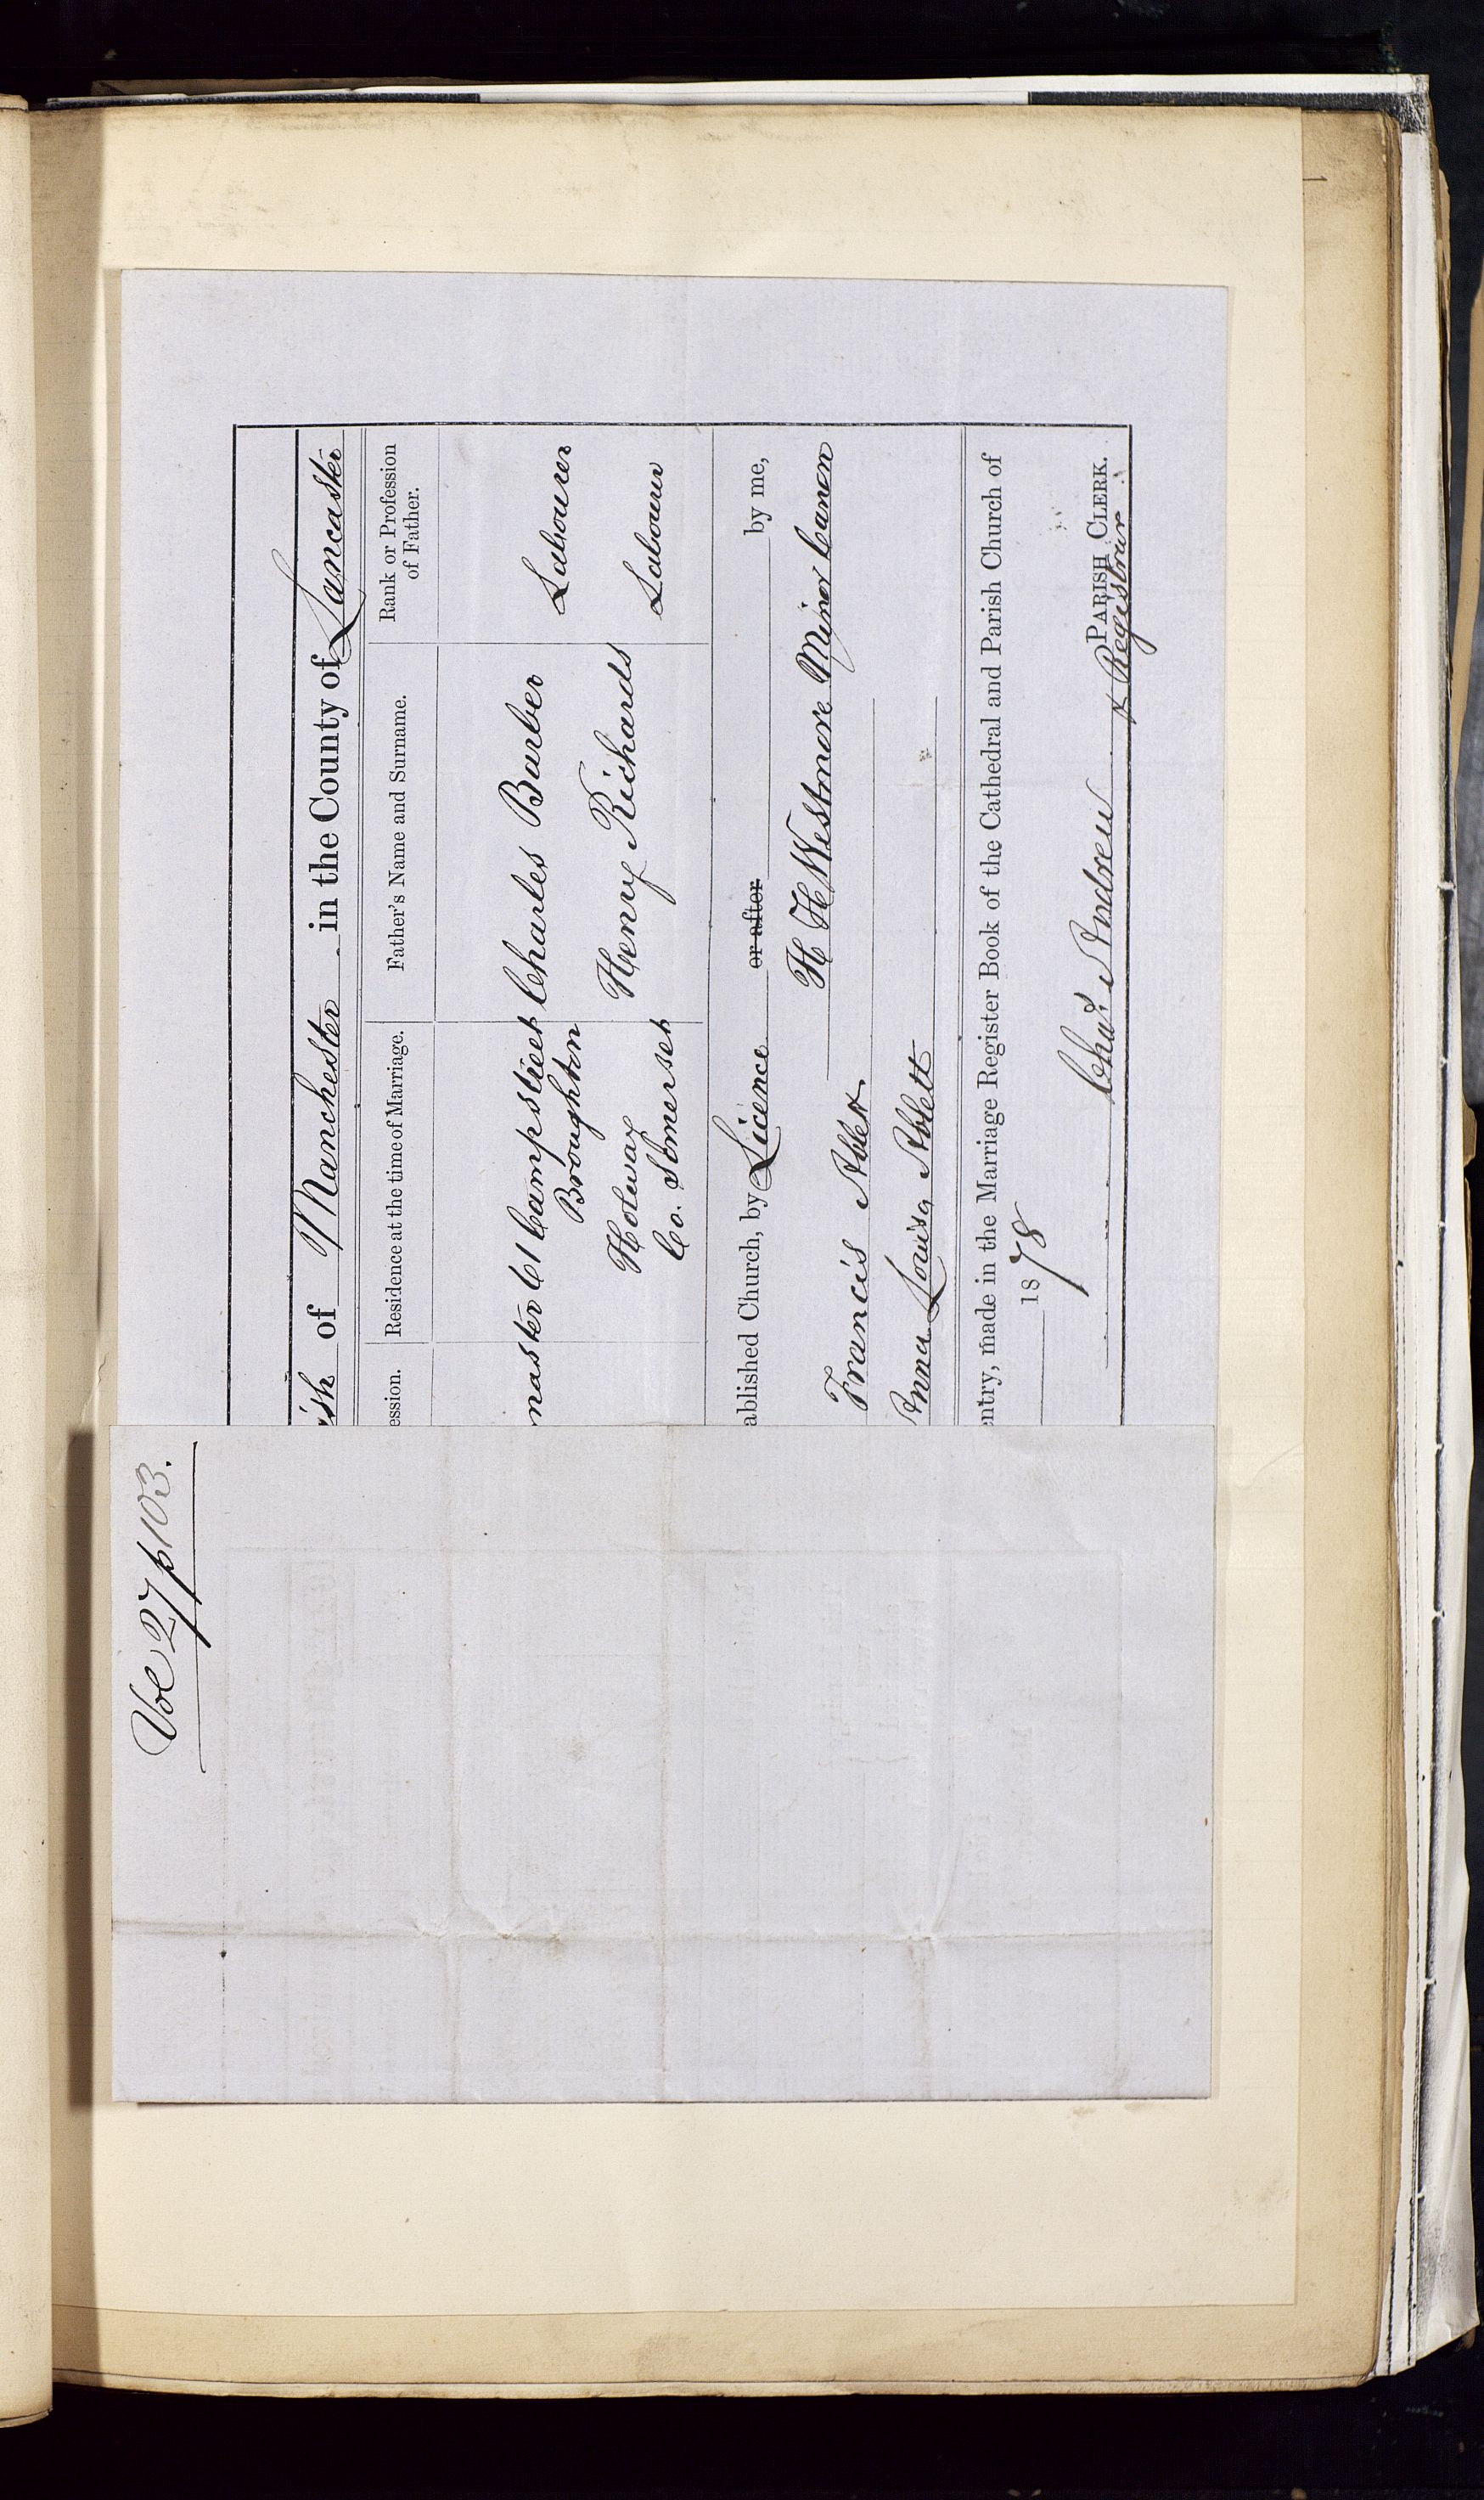 Vol 27 p 103.
ish of Manchester in the County of Lancaster
ession. Residence at the time of Marriage. Father's Name and Surname. Rank or Profession of Father.
master 61 Camp Street Charles Barber Labourer
Broughton
Holway Henry Richards Labourer
Co. Somerset
ablished Church, by Licence or after by me,
H H Westmore Minor Canon
Francis Ablett
Anna Louisa Ablett
entry, made in the Marriage Register Book of the Cathedral and Parish Church of
1878
Chas. Andrew PARISH CLERK.
& Registrar